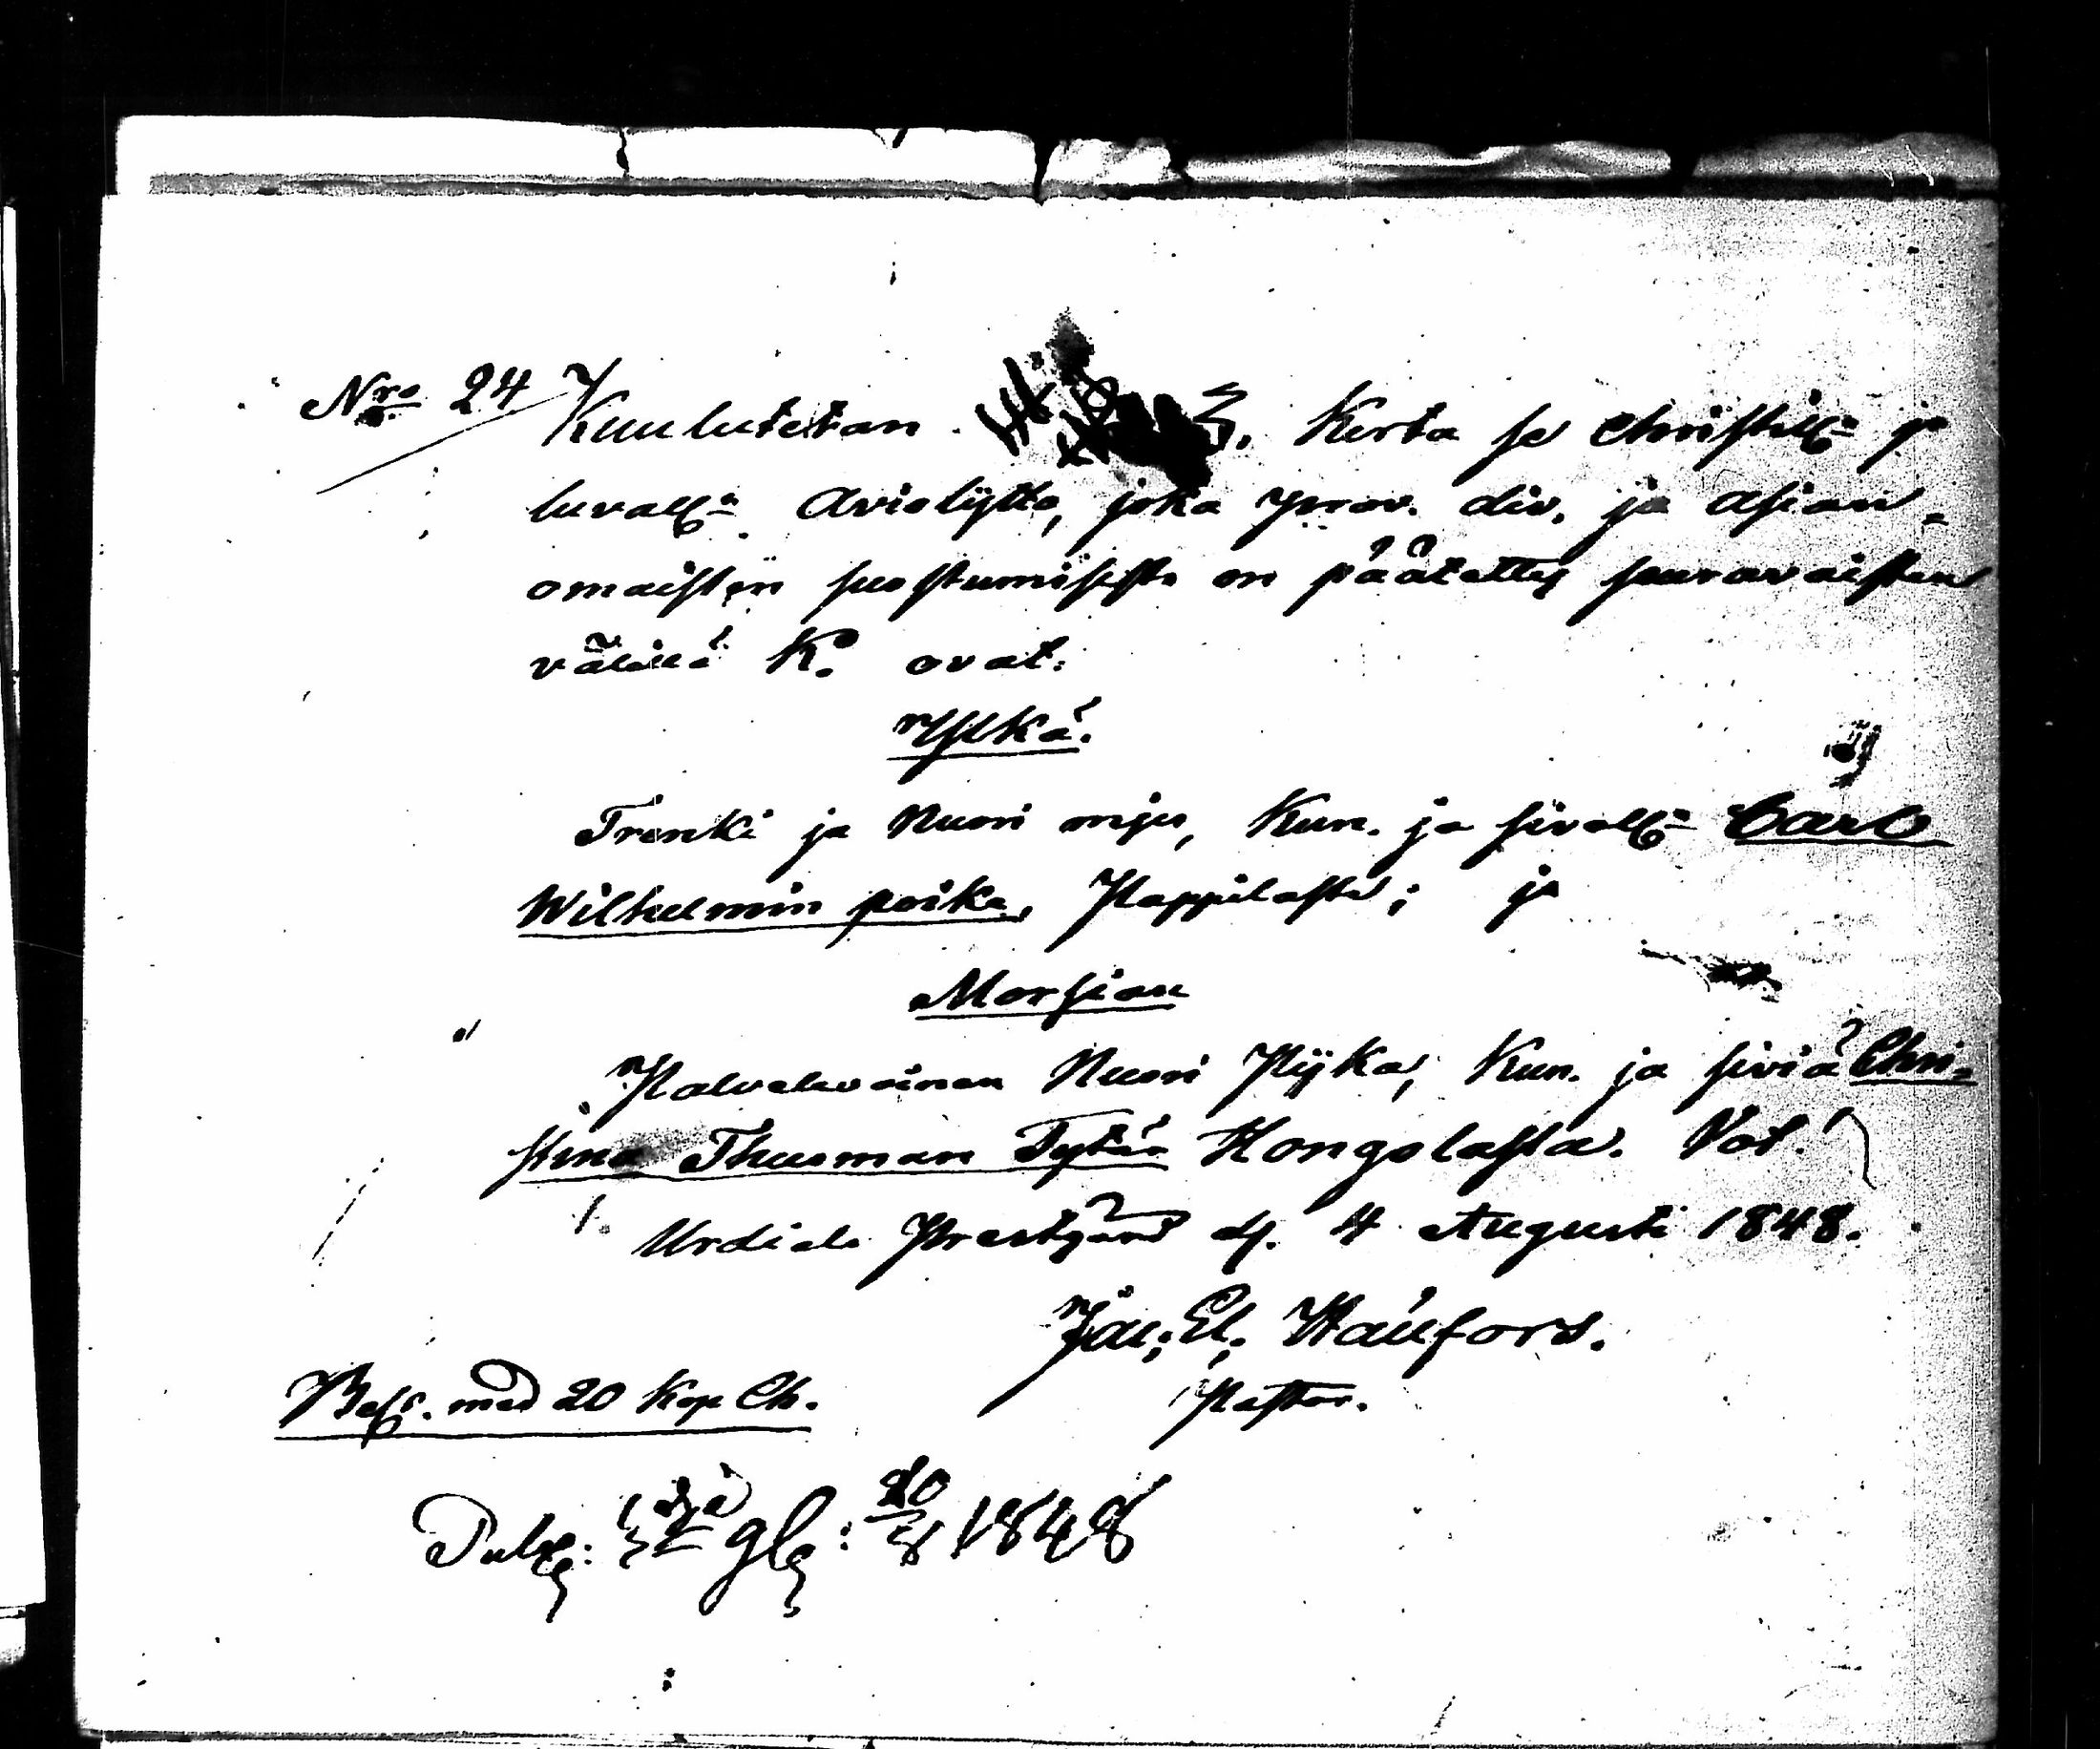 Nro 24 Kuulutetan 3. Kerta se Christill: ja
luvall: Avioliitto, joka prov. div. ja asian-
omaisten suostumisesta on päätetty seuravaisten
välillä K. ovat:
Ylkä.
Trenki ja Nuori mjes, Kun. ja sivall: Carl
Wilhelmin poika, Pappilasta; ja
Morsian
Palvelevainen Nuori Pijka, Kun. ja siviä Chri-
stina Thuoman Tytär Hongolasta. Vot!
Urdiala Prestgård d. 4 Augusti 1848.
Jac; El; Hällfors.
Pastor.
Bes. med 20 Kop Ch.
Publ: gl: 20/8 1848